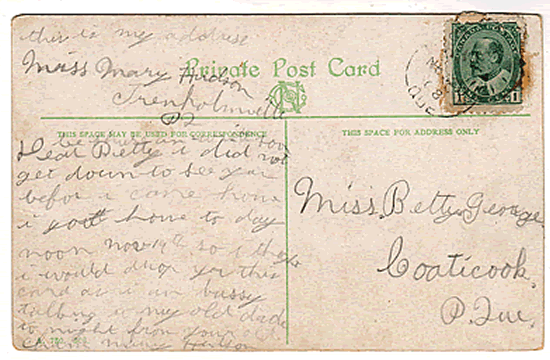 this is my address
Miss Mary Hudson
Private Post Card
Trenholmville
P2
THIS SPACE MAY BE USED FOR CORRESPONDENCE
Dear Betty i did not
get down to see you
befor i came home
i got home to day
noon nov 19th so i
i would drop you this
card as i am bussy
talking to my old dade
to night from your
chume mary Hudson
CANADA POSTAGE
1 1
QUE
THIS SPACE FOR ADDRESS ONLY
Miss. Betty George
Coaticook.
P. Que.